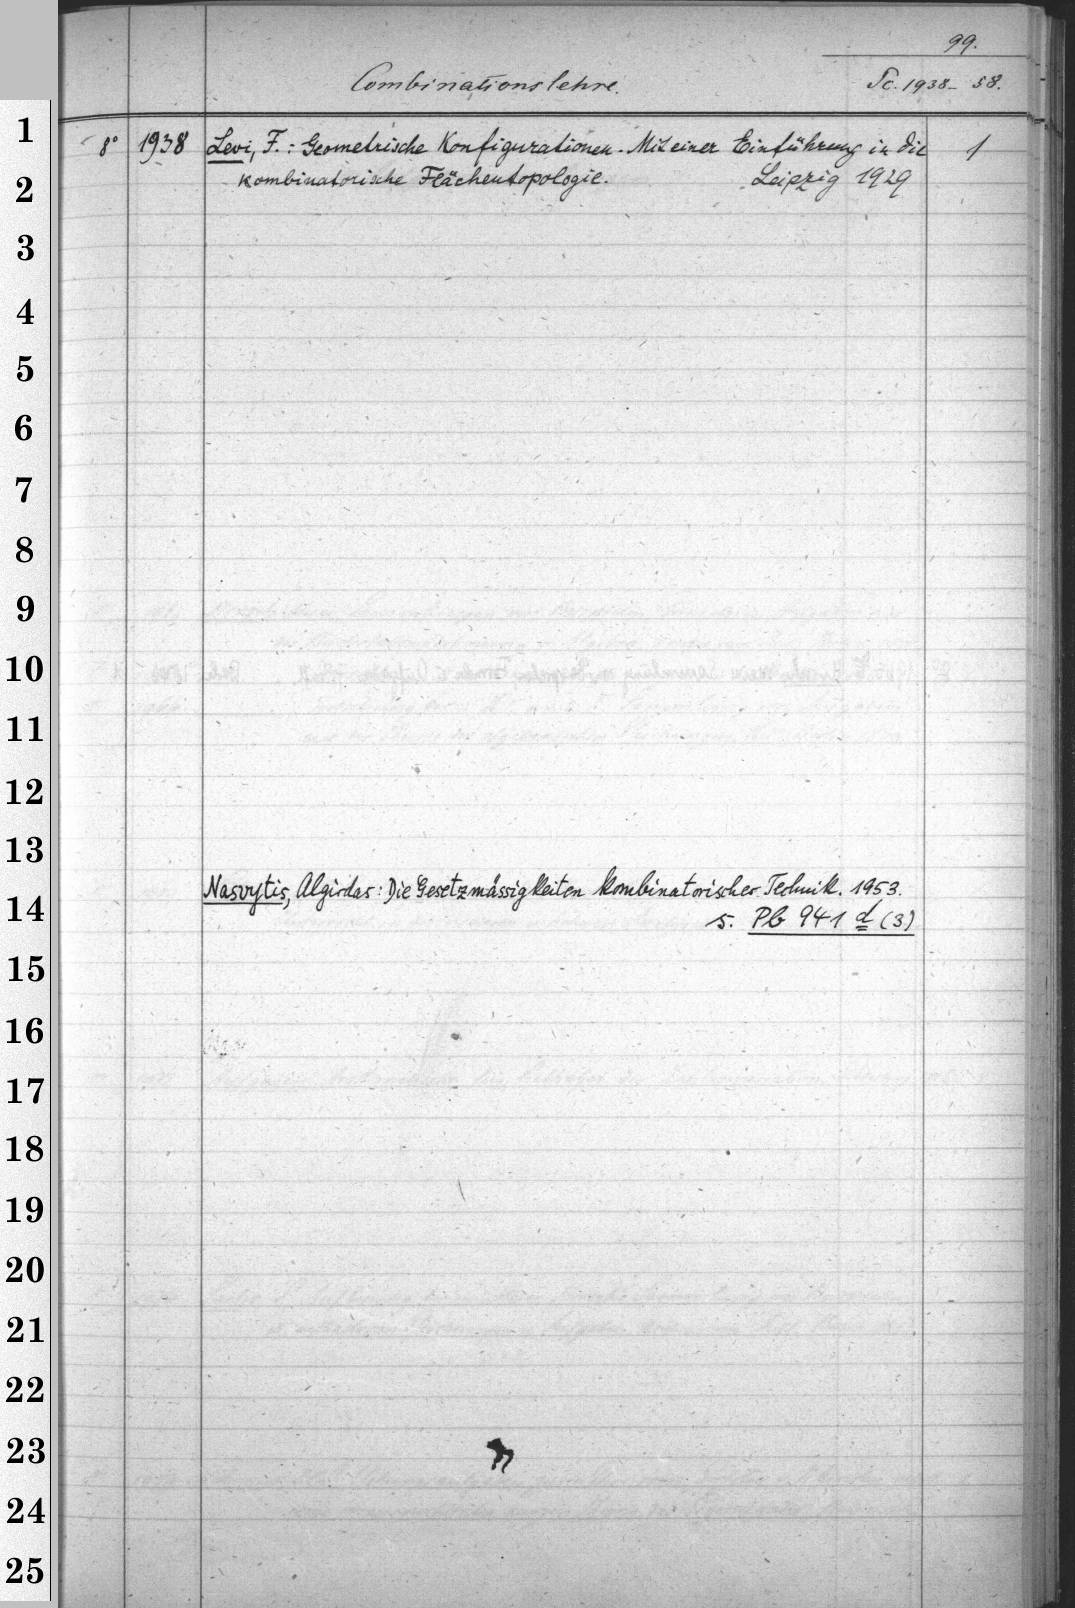 99.
Combinationslehre.
Sc. 1938-58.
8° 1938 Levi, F.: Geometrische Konfigurationen. Mit einer Einführung in die 1
kombinatorische Flächentopologie. Leipzig 1929
Nasvytis, Algirdas: Die Gesetzmässigkeiten kombinatorischer Technik. 1953.
s. Pb 941 d (3)
1
2
3
4
5
6
7
8
9
10
11
12
13
14
15
16
17
18
19
20
21
22
23
24
25